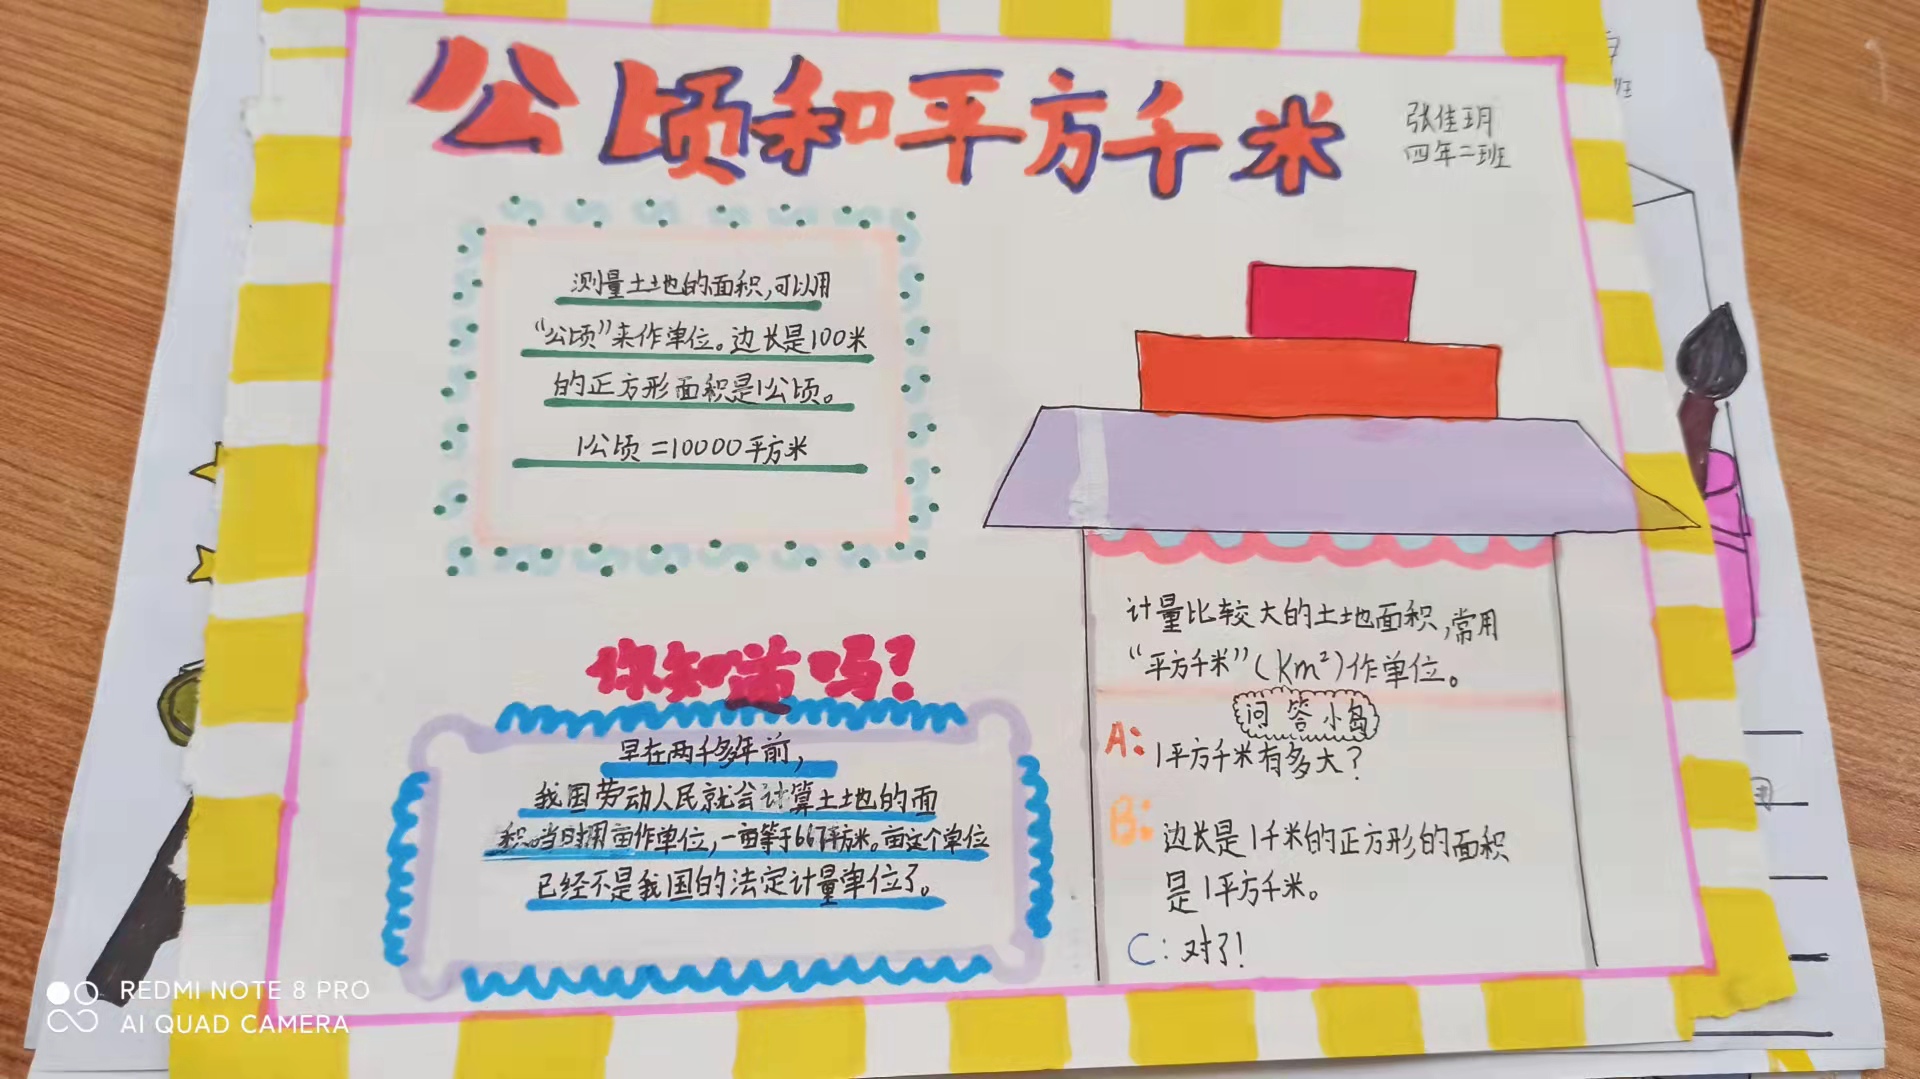 公顷和平方千米
张佳玥
四年二班
测量土地的面积,可以用
“公顷”来作单位。边长是100米
的正方形面积是1公顷。
1公顷=10000平方米
你知道吗?
早在两千多年前,
我国劳动人民就会计算土地的面
积。当时用亩作单位,一亩等于667平方米。亩这个单位
已经不是我国的法定计量单位了。
计量比较大的土地面积,常用
“平方千米”(km²)作单位。
问答小岛
A:1平方千米有多大?
B:边长是1千米的正方形的面积
是1平方千米。
C:对了!
REDMI NOTE 8 PRO
AI QUAD CAMERA